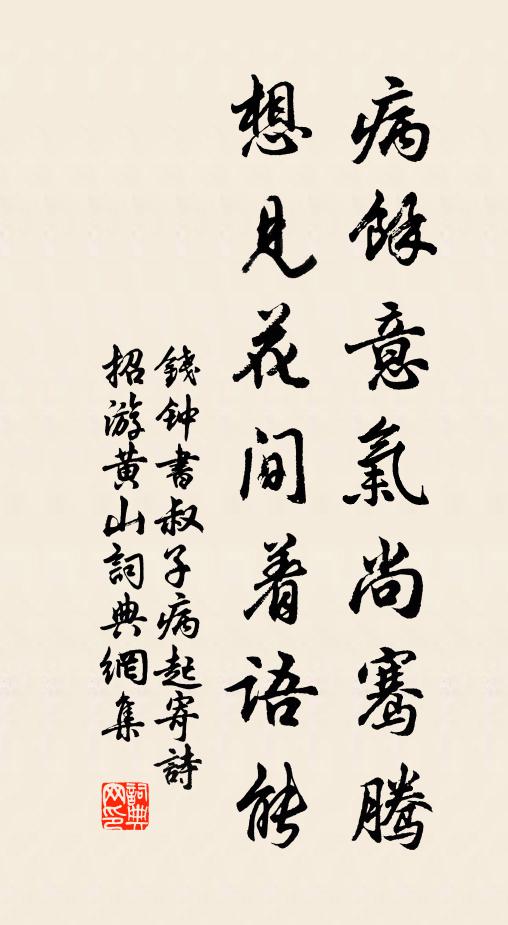 病餘意氣尚騫騰
想見花間着語能
錢钟書叔子病起寄詩
招游黄山詞典網集
詞典網印